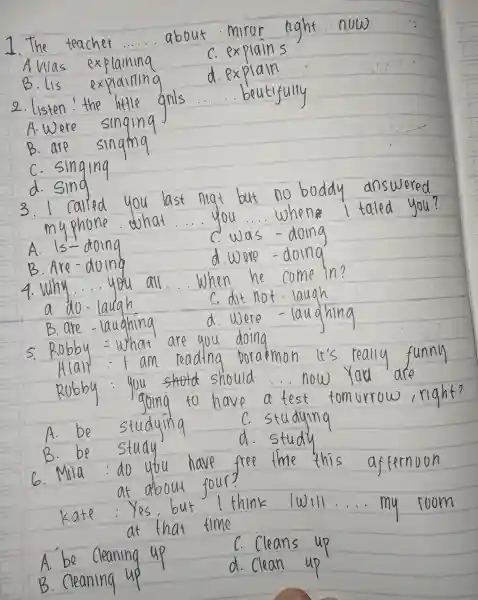 1. The teacher ..... about mirror right now
A. Was explaining
C. explains
B. Lis explaining
d. explain
2. listen! the little girls .. .. beutifully
A. Were singing
B. are singing
C. singing
d. Sing
3. I called you last nigt but no boddy answered
my phone. what .... you .... when I taled you?
A. Is - doing
C. was - doing
B. Are - doing
d. were - doing
4. Why .... you all ... When he come in?
a do - laugh
C. dit not - laugh
B. are - laughing
d. Were - laughing
5. Robby = What are you doing
Alan : I am reading doraemon It's really funny
Robby : you should ... now You are
going to have a test tomorrow, right?
A. be studying
C. studying
B. be study
d. study
6. Mila : do you have free time this afternoon
at about four?
Kate : Yes, but I think I will .... my room
at that time
A. be Cleaning up
C. Cleans up
B. Cleaning up
d. Clean up